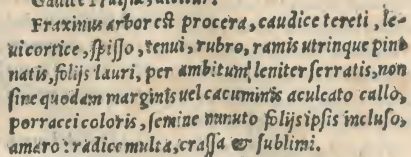 Fraxinus arbor eſt procera, caudice tereti, le-
ui cortice, ſpiſſo, tenui, rubro, ramis utrinque pin
natis, folijs lauri, per ambitum leniter ſerratis, non
ſine quodam marginis uel cacuminis aculeato callo,
porracei coloris, ſemine minuto folijs ipſis incluſo,
amaro: radice multa, craſſa & ſublimi.